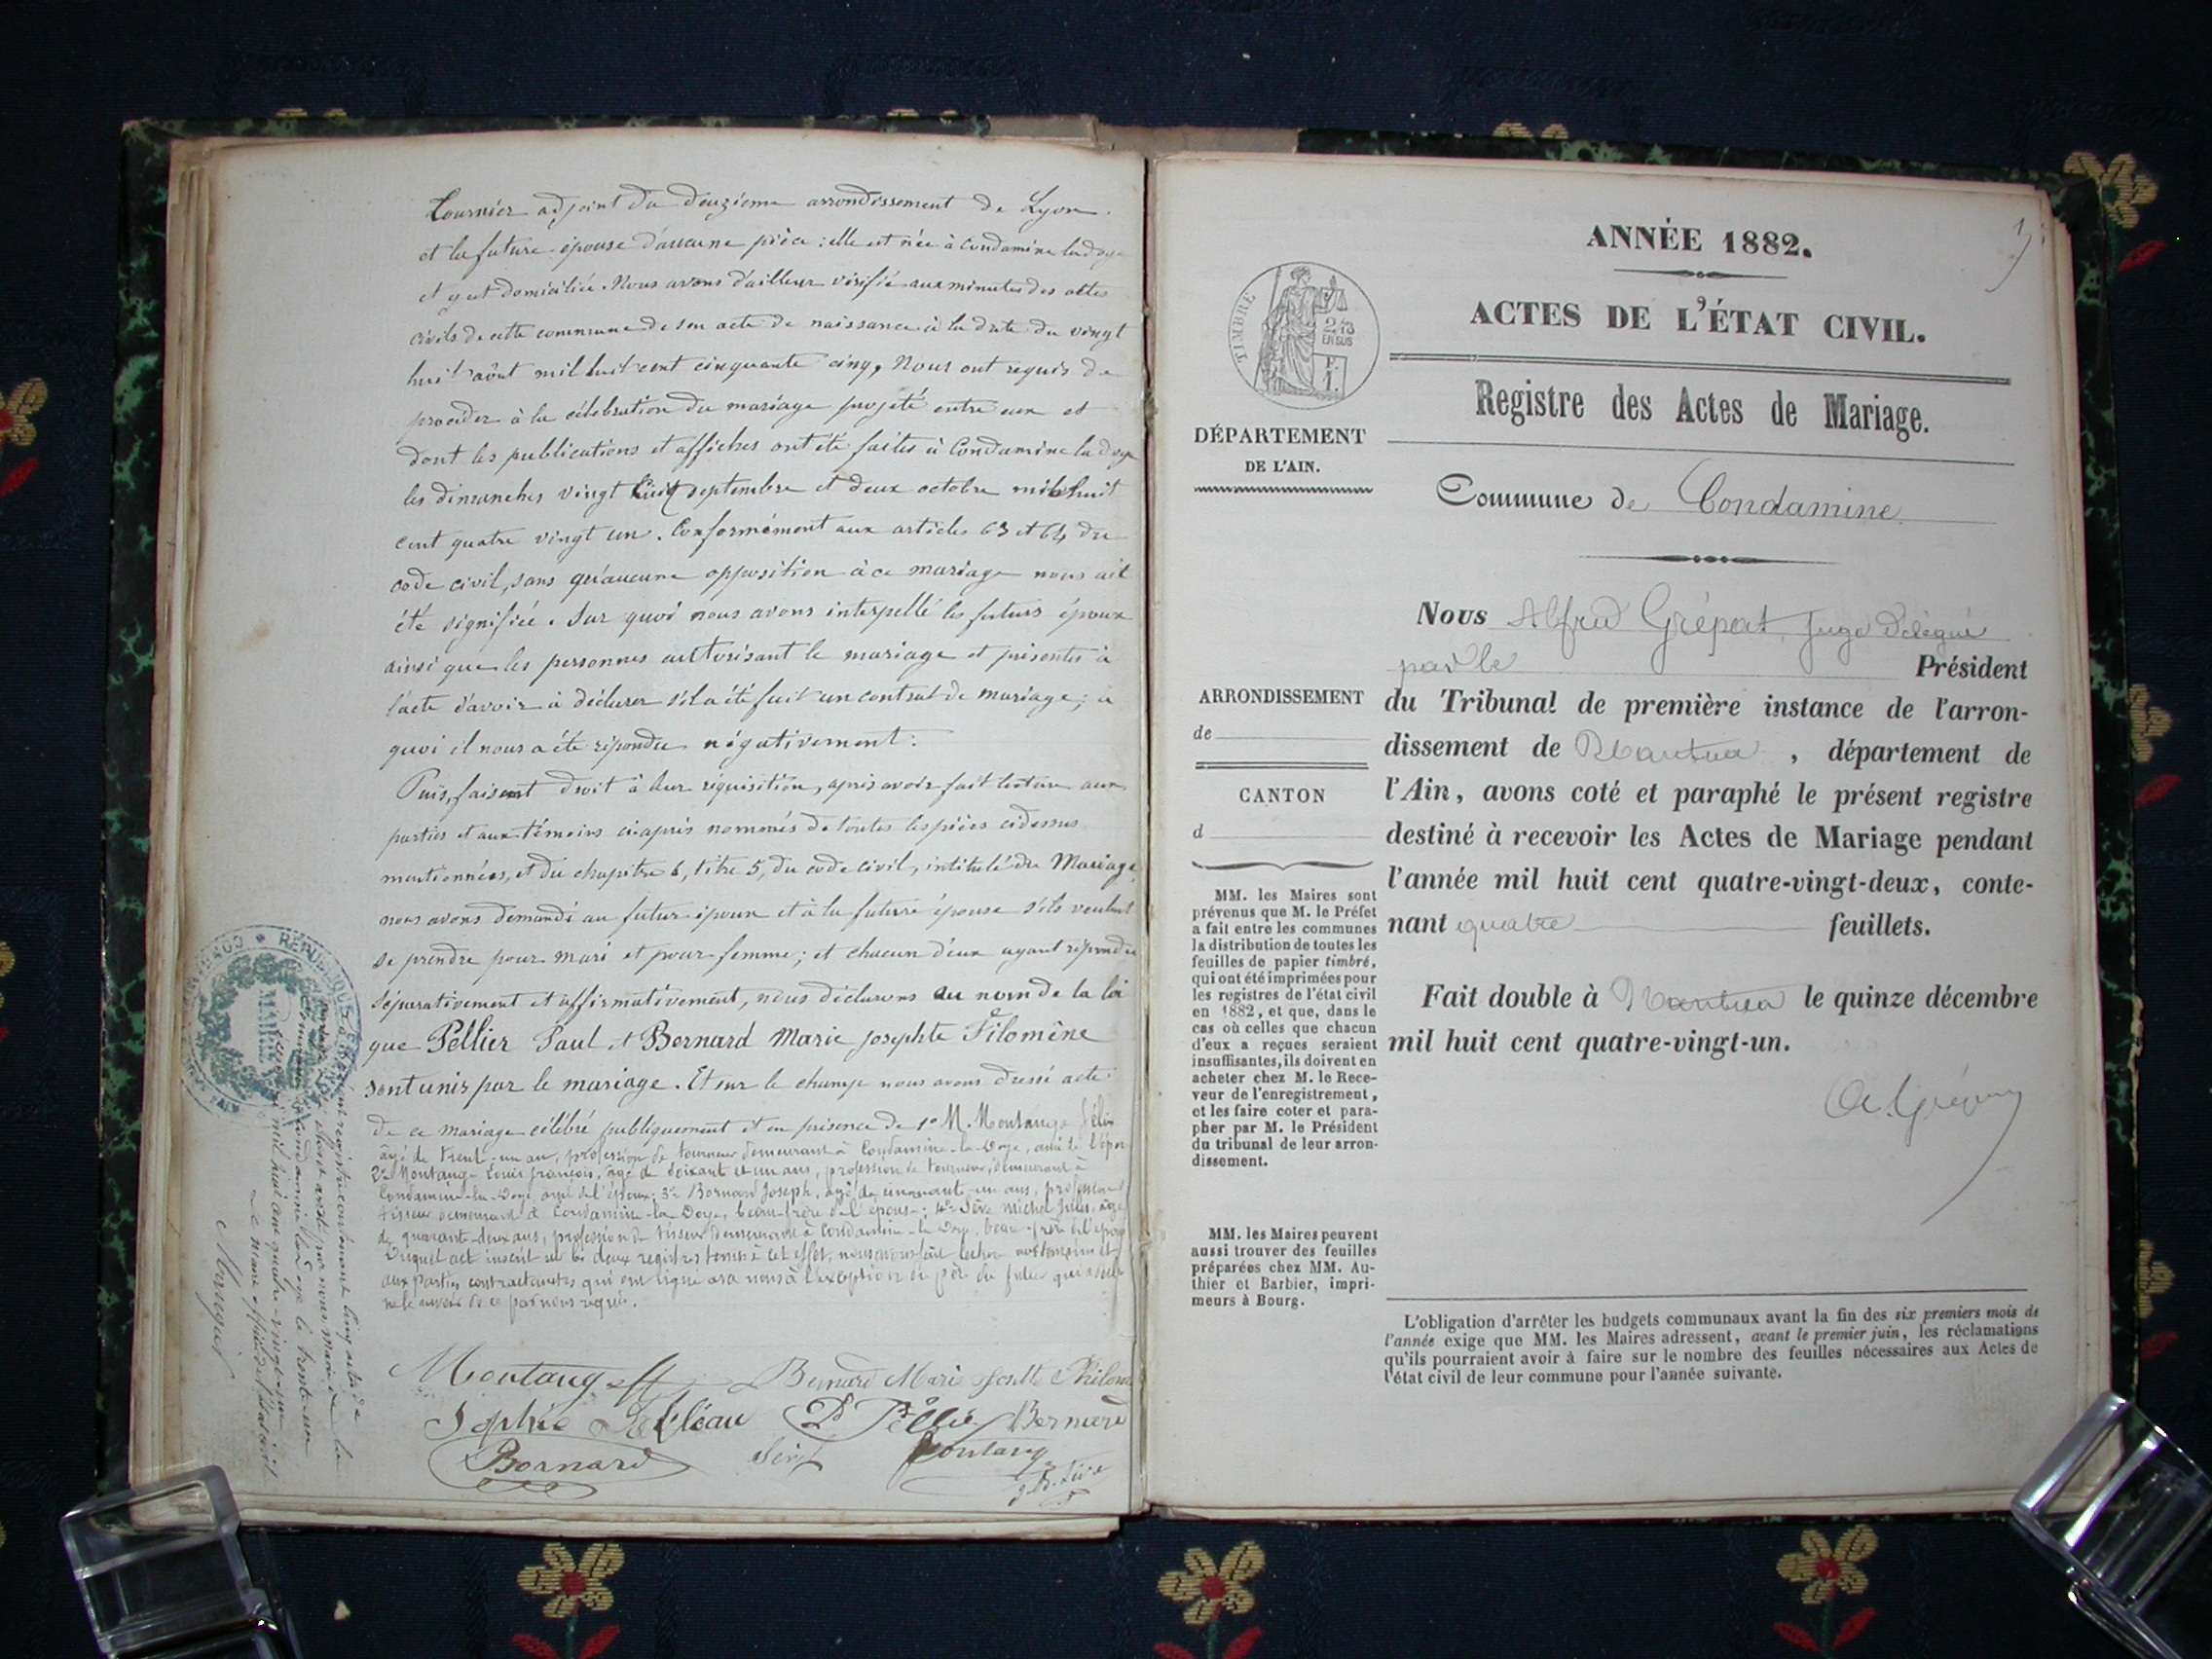 Tournier adjoint du deuzième arrondissement de Lyon.
et la future épouse d'aucune pièce : elle est née à Condamine la doye
et y est domiciliée. Nous avons d'ailleur vérifié aux minutes des actes
civils de cette commune de son acte de naissance à la date du vingt
huit août mil huit cent cinquante cinq, Nous ont requis de
procéder à la célébration du mariage projeté entre eux et
dont les publications et affiches ont été faites à Condamine la doye
les dimanches vingt septembre et deux octobre mil huit
cent quatre vingt un. Conformément aux articles 63 et 64 du
code civil, sans qu'aucune opposition à ce mariage nous ait
été signifiée. Sur quoi nous avons interpellé les futurs époux
ainsi que les personnes autorisant le mariage et présentes à
l'acte d'avoir à déclarer s'il a été fait un contrat de mariage ; à
quoi il nous a été répondu négativement.
Puis, faisant droit à leur réquisition, après avoir fait lecture aux
parties et aux témoins ci-après nommés de toutes les pièces cidessus
mentionnées, et du chapitre 6, titre 5, du code civil, intitulé du Mariage,
nous avons demandé au futur époux et à la future épouse s'ils veulent
se prendre pour mari et pour femme ; et chacun d'eux ayant répondu
séparativement et affirmativement, nous déclarons au nom de la loi
que Pellier Paul et Bernard Marie josephte Filomène
sont unis par le mariage. Et sur le champ nous avons dressé acte
de ce mariage célébré publiquement et en présence de 1o M. Montange Félix
âgé de trent-un an, profession de tourneur demeurant à Condamine-la-Doye, ami de l'époux
2o Montange Louis françois, âgé de soixant et un ans, profession de tourneur, demeurant à
Condamine-la-Doye, ami de l'époux ; 3o Bernard Joseph, âgé de cinquant-un ans, profession de
tisseur demeurant à Condamine-la-Doye, beau-frère de l'épouse ; 4o Sève Michel Jules, âgé
de quarant-deux ans, profession de tisseur demeurant à Condamine-la-Doye, beau-frère de l'épouse
Duquel act inscrit sur les deux registres tenus à cet effet, nous avons fait lecture aux témoins et
aux parties contractantes qui ont signé avec nous à l'exception du père du futur qui a déclaré
ne le savoir de ce par nous requis.
Montange Bernard Marie Philom
Sophie P. Pellier Bernard
Bernard Sève Montange
J. B. Sève
RÉPUBLIQUE
le présent registre contenant cinq actes de
arrêté par nous, maire de la
commune de Condamine la Doye le trente-un
mil huit cent quatre-vingt-un
Le maire officier de l'état civil
ANNÉE 1882.
ACTES DE L'ÉTAT CIVIL.
Registre des Actes de Mariage.
Commune de Condamine
TIMBRE
EN SUS
DÉPARTEMENT
DE L'AIN.
ARRONDISSEMENT
de
CANTON
d
MM. les Maires sont
prévenus que M. le Préfet
a fait entre les communes
la distribution de toutes les
feuilles de papier timbré,
qui ont été imprimées pour
les registres de l'état civil
en 1882, et que, dans le
cas où celles que chacun
d'eux a reçues seraient
insuffisantes, ils doivent en
acheter chez M. le Rece-
veur de l'enregistrement,
et les faire coter et para-
pher par M. le Président
du tribunal de leur arron-
dissement.
MM. les Maires peuvent
aussi trouver des feuilles
préparées chez MM. Au-
thier et Barbier, impri-
meurs à Bourg.
Nous Alfred Grépat, Juge Délégué
par le Président
du Tribunal de première instance de l'arron-
dissement de Nantua, département de
l'Ain, avons coté et paraphé le présent registre
destiné à recevoir les Actes de Mariage pendant
l'année mil huit cent quatre-vingt-deux, conte-
nant quatre feuillets.
Fait double à Nantua le quinze décembre
mil huit cent quatre-vingt-un.
L'obligation d'arrêter les budgets communaux avant la fin des six premiers mois de
l'année exige que MM. les Maires adressent, avant le premier juin, les réclamations
qu'ils pourraient avoir à faire sur le nombre des feuilles nécessaires aux Actes de
l'état civil de leur commune pour l'année suivante.